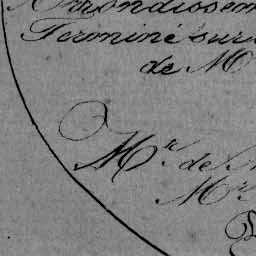 Arrondissem
Terminé sur
de M
Mr. de
Mr.